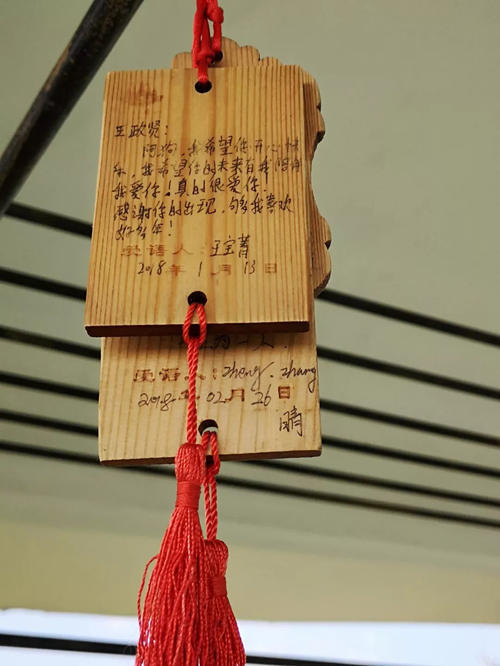 王政贤：
阿狗，我希望你开心快
乐，我希望你的未来有我陪着
我爱你！真的很爱你．
感谢你的出现，够我喜欢
好多年！
爱语人：王宝菁
2018年1月13日
一人．
爱语人：zheng．zhang
2018年02月26日